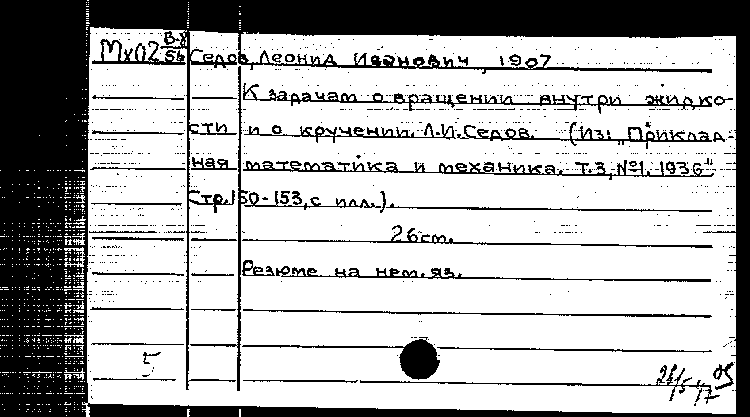 Мх02 В-8/56 Седов, Леонид Иванович, 1907
К задачам о вращении внутри жидко-
сти и о кручении. Л.И.Седов. (Из: „Приклад-
ная математика и механика. т.3, №1. 1936"
Стр.150-153, с илл.).
26 cm.
Резюме на нем. яз.
5